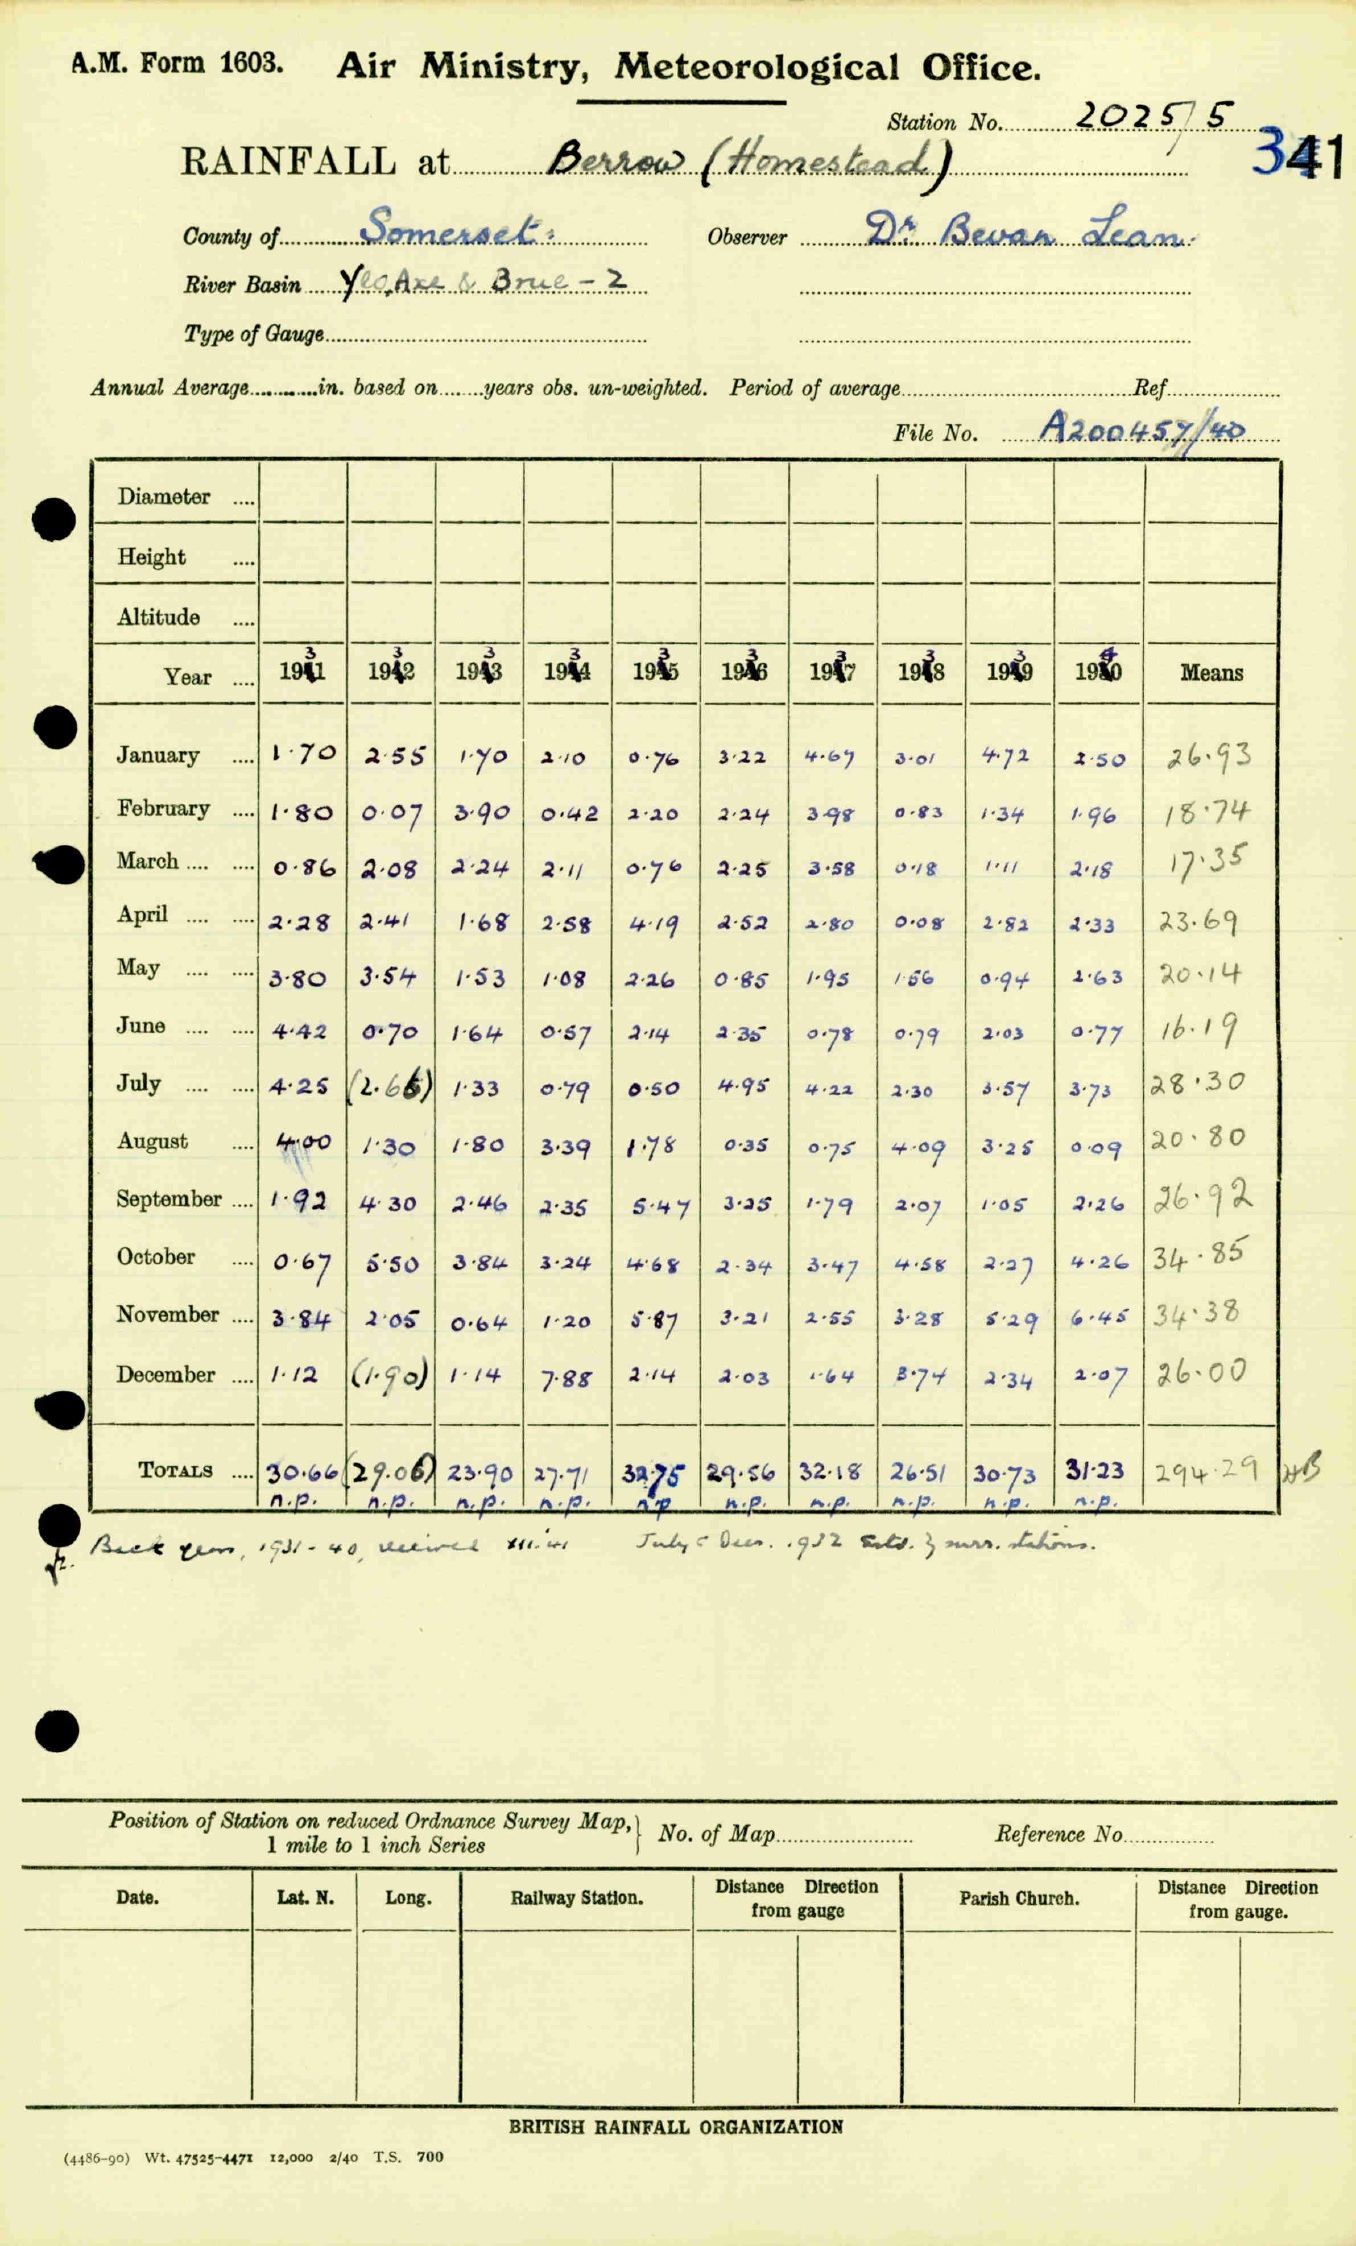 A.M. Form 1603. Air Ministry, Meteorological Office.
Station No. 2025/5
341
RAINFALL at Berrow (Homestead)
County of Somerset. Observer Dr. Bevan Lean.
River Basin Yeo, Axe & Brue - 2
Type of Gauge
Annual Average in. based on years obs. un-weighted. Period of average Ref.
File No. A200457/40
Diameter
Height
Altitude
Year 1931 1932 1933 1934 1935 1936 1937 1938 1939 1940 Means
January 1.70 2.55 1.70 2.10 0.76 3.22 4.67 3.01 4.72 2.50 26.93
February 1.80 0.07 3.90 0.42 2.20 2.24 3.98 0.83 1.34 1.96 18.74
March 0.86 2.08 2.24 2.11 0.76 2.25 3.58 0.18 1.11 2.18 17.35
April 2.28 2.41 1.68 2.58 4.19 2.52 2.80 0.08 2.82 2.33 23.69
May 3.80 3.54 1.53 1.08 2.26 0.85 1.95 1.56 0.94 2.63 20.14
June 4.42 0.70 1.64 0.57 2.14 2.35 0.78 0.79 2.03 0.77 16.19
July 4.25 (2.66) 1.33 0.79 0.50 4.95 4.22 2.30 3.57 3.73 28.30
August 4.00 1.30 1.80 3.39 1.78 0.35 0.75 4.09 3.25 0.09 20.80
September 1.92 4.30 2.46 2.35 5.47 3.25 1.79 2.07 1.05 2.26 26.92
October 0.67 5.50 3.84 3.24 4.68 2.34 3.47 4.58 2.27 4.26 34.85
November 3.84 2.05 0.64 1.20 5.87 3.21 2.55 3.28 5.29 6.45 34.38
December 1.12 (1.90) 1.14 7.88 2.14 2.03 1.64 3.74 2.34 2.07 26.00
TOTALS 30.66 (29.06) 23.90 27.71 32.75 29.56 32.18 26.51 30.73 31.23 294.29
n.p. n.p. n.p. n.p. n.p n.p. n.p. n.p. n.p. n.p.
Back years, 1931-40, received xii.41 July & Dec. 1932 surr. stations.
Position of Station on reduced Ordnance Survey Map, No. of Map Reference No.
1 mile to 1 inch Series
Date. Lat. N. Long. Railway Station. Distance Direction from gauge Parish Church. Distance Direction from gauge.
BRITISH RAINFALL ORGANIZATION
(4486-90) Wt. 47525-4471 12,000 2/40 T.S. 700